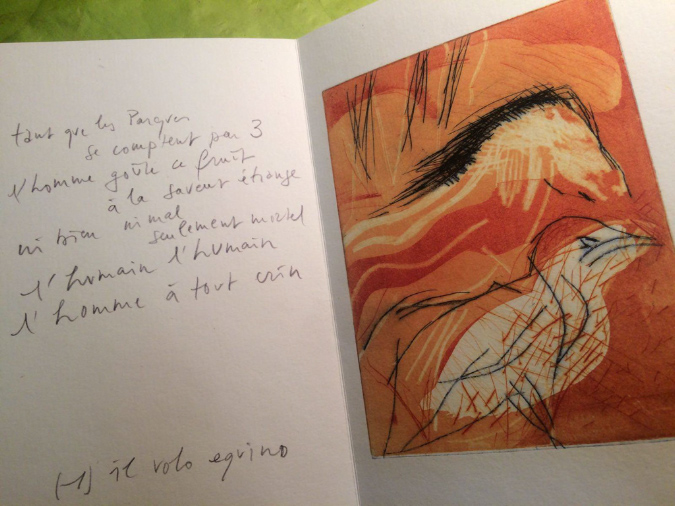 tant que les Parques
se comptent par 3
l'homme goûte ce fruit
à la saveur étrange
ni bien ni mal
seulement mortel
l'humain l'humain
l'homme à tout crin
(-1) il volo equino